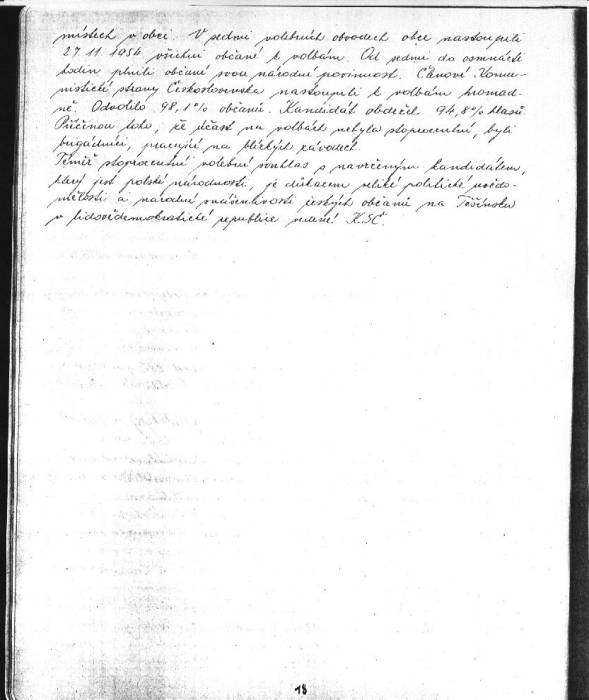 místech v obci. V sedmi volebních obvodech obce nastoupili
27.11.1954 všichni občané k volbám. Od sedmi do osmnácti
hodin plnili občané svou národní povinnost. Členové Komu-
nistické strany Československa nastoupili k volbám hromad-
ně. Odvolilo 98,1% občanů. Kandidát obdržel 94,8% hlasů.
Příčinou toho, že účast na volbách nebyla stoprocentní, byli
brigádníci, pracující na blízkých závodech.
Téměř stoprocentní volební souhlas s navrženým kandidátem,
který jest polské národnosti, je důkazem veliké politické uvědo-
mělosti a národní snášenlivosti českých občanů na Těšínsku
v lidovědemokratické republice vedené KSČ.
18